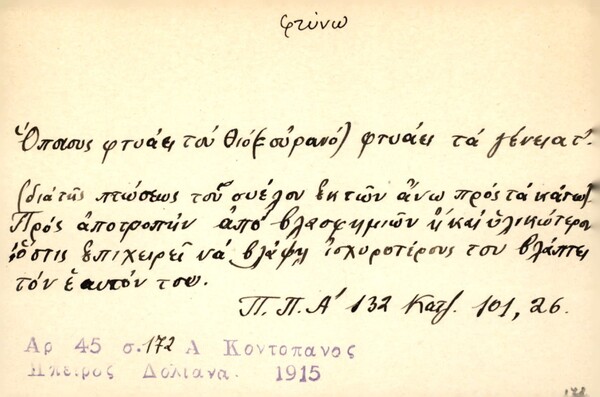 φτύνω
Ὅποιους φτυάει τοὐ θιό(=οὐρανό) φτυάει τά γένειατ'.
(διά τῆς πτώσεως τοῦ συέλου ἐκ τῶν ἄνω πρός τά κάτω)
Πρός ἀποτροπήν ἀπό βλασφημιῶν ἤ καί ὑλικώτερον
ὅστις ἐπιχειρεῖ νά βλάψῃ ἰσχυροτέρους του βλάπτει
τόν ἑαυτόν του.
Π.Π.Α' 132 Κατζ. 101, 26.
Αρ 45 σ.172 Α Κοντοπανος
Ηπειρος Δολιανα. 1915